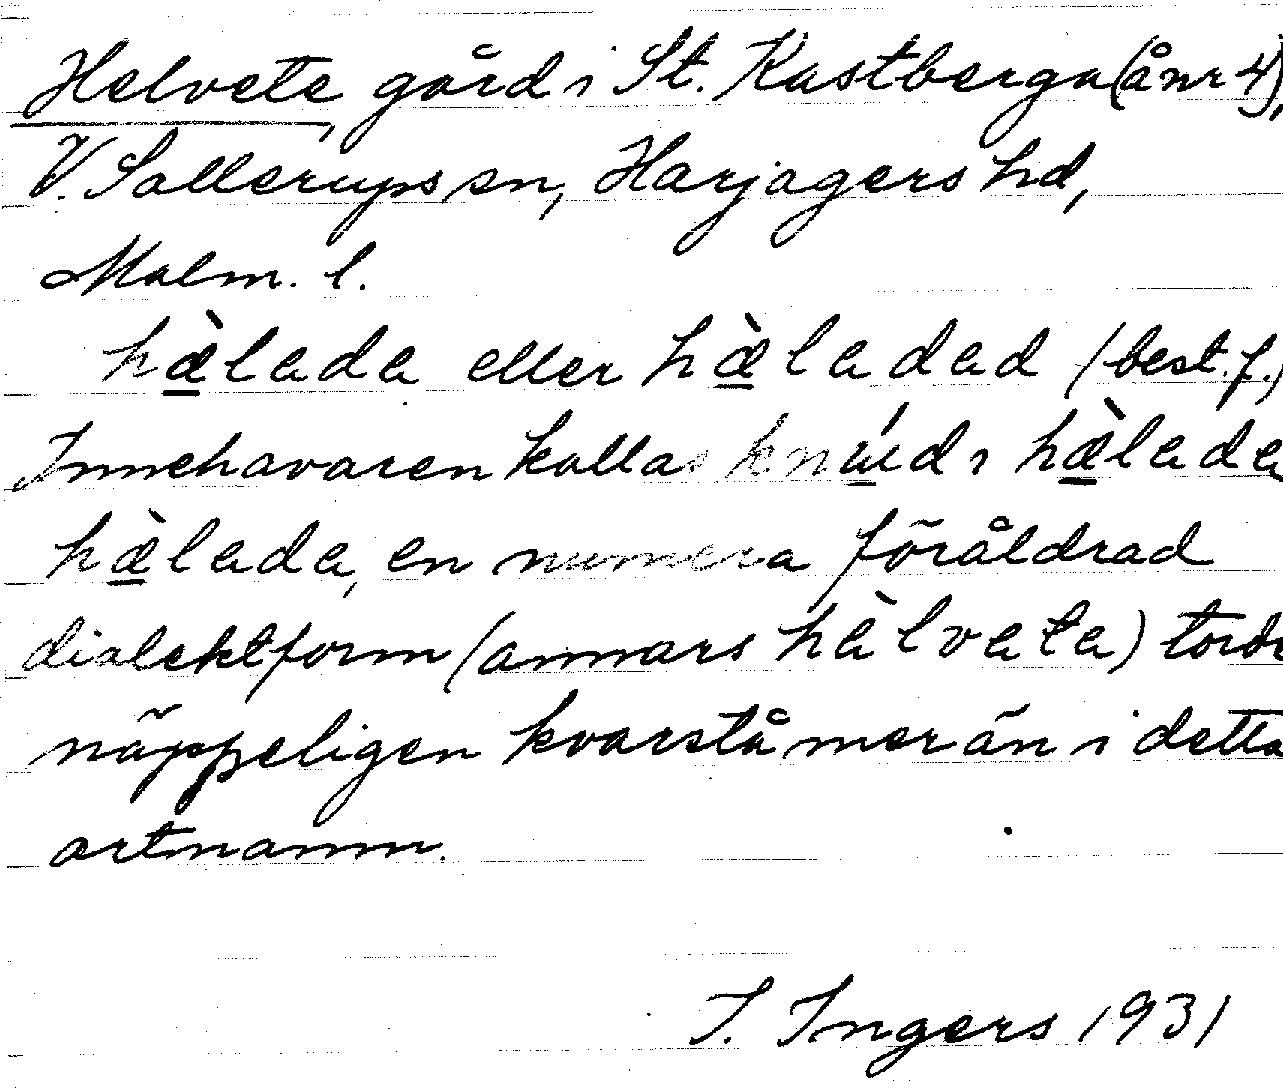 Helvete, gård i St. Kastberga (å nr 4),
V. Sallerups sn, Harjagers hd,
Malm. l.
hæ̀lada eller hæ̀ladad (best. f.)
Innehavaren kallas i hæ̀lada
hæ̀lada, en numera föråldrad
dialektform (annars hàlvata) torde
näppeligen kvarstå mer än i detta
ortnamn.
I. Ingers 1931